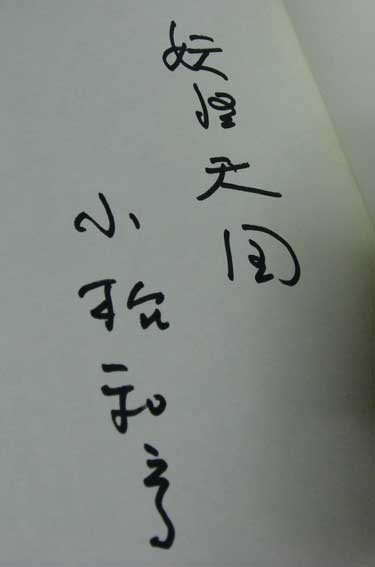 妖怪天国
小松和彦